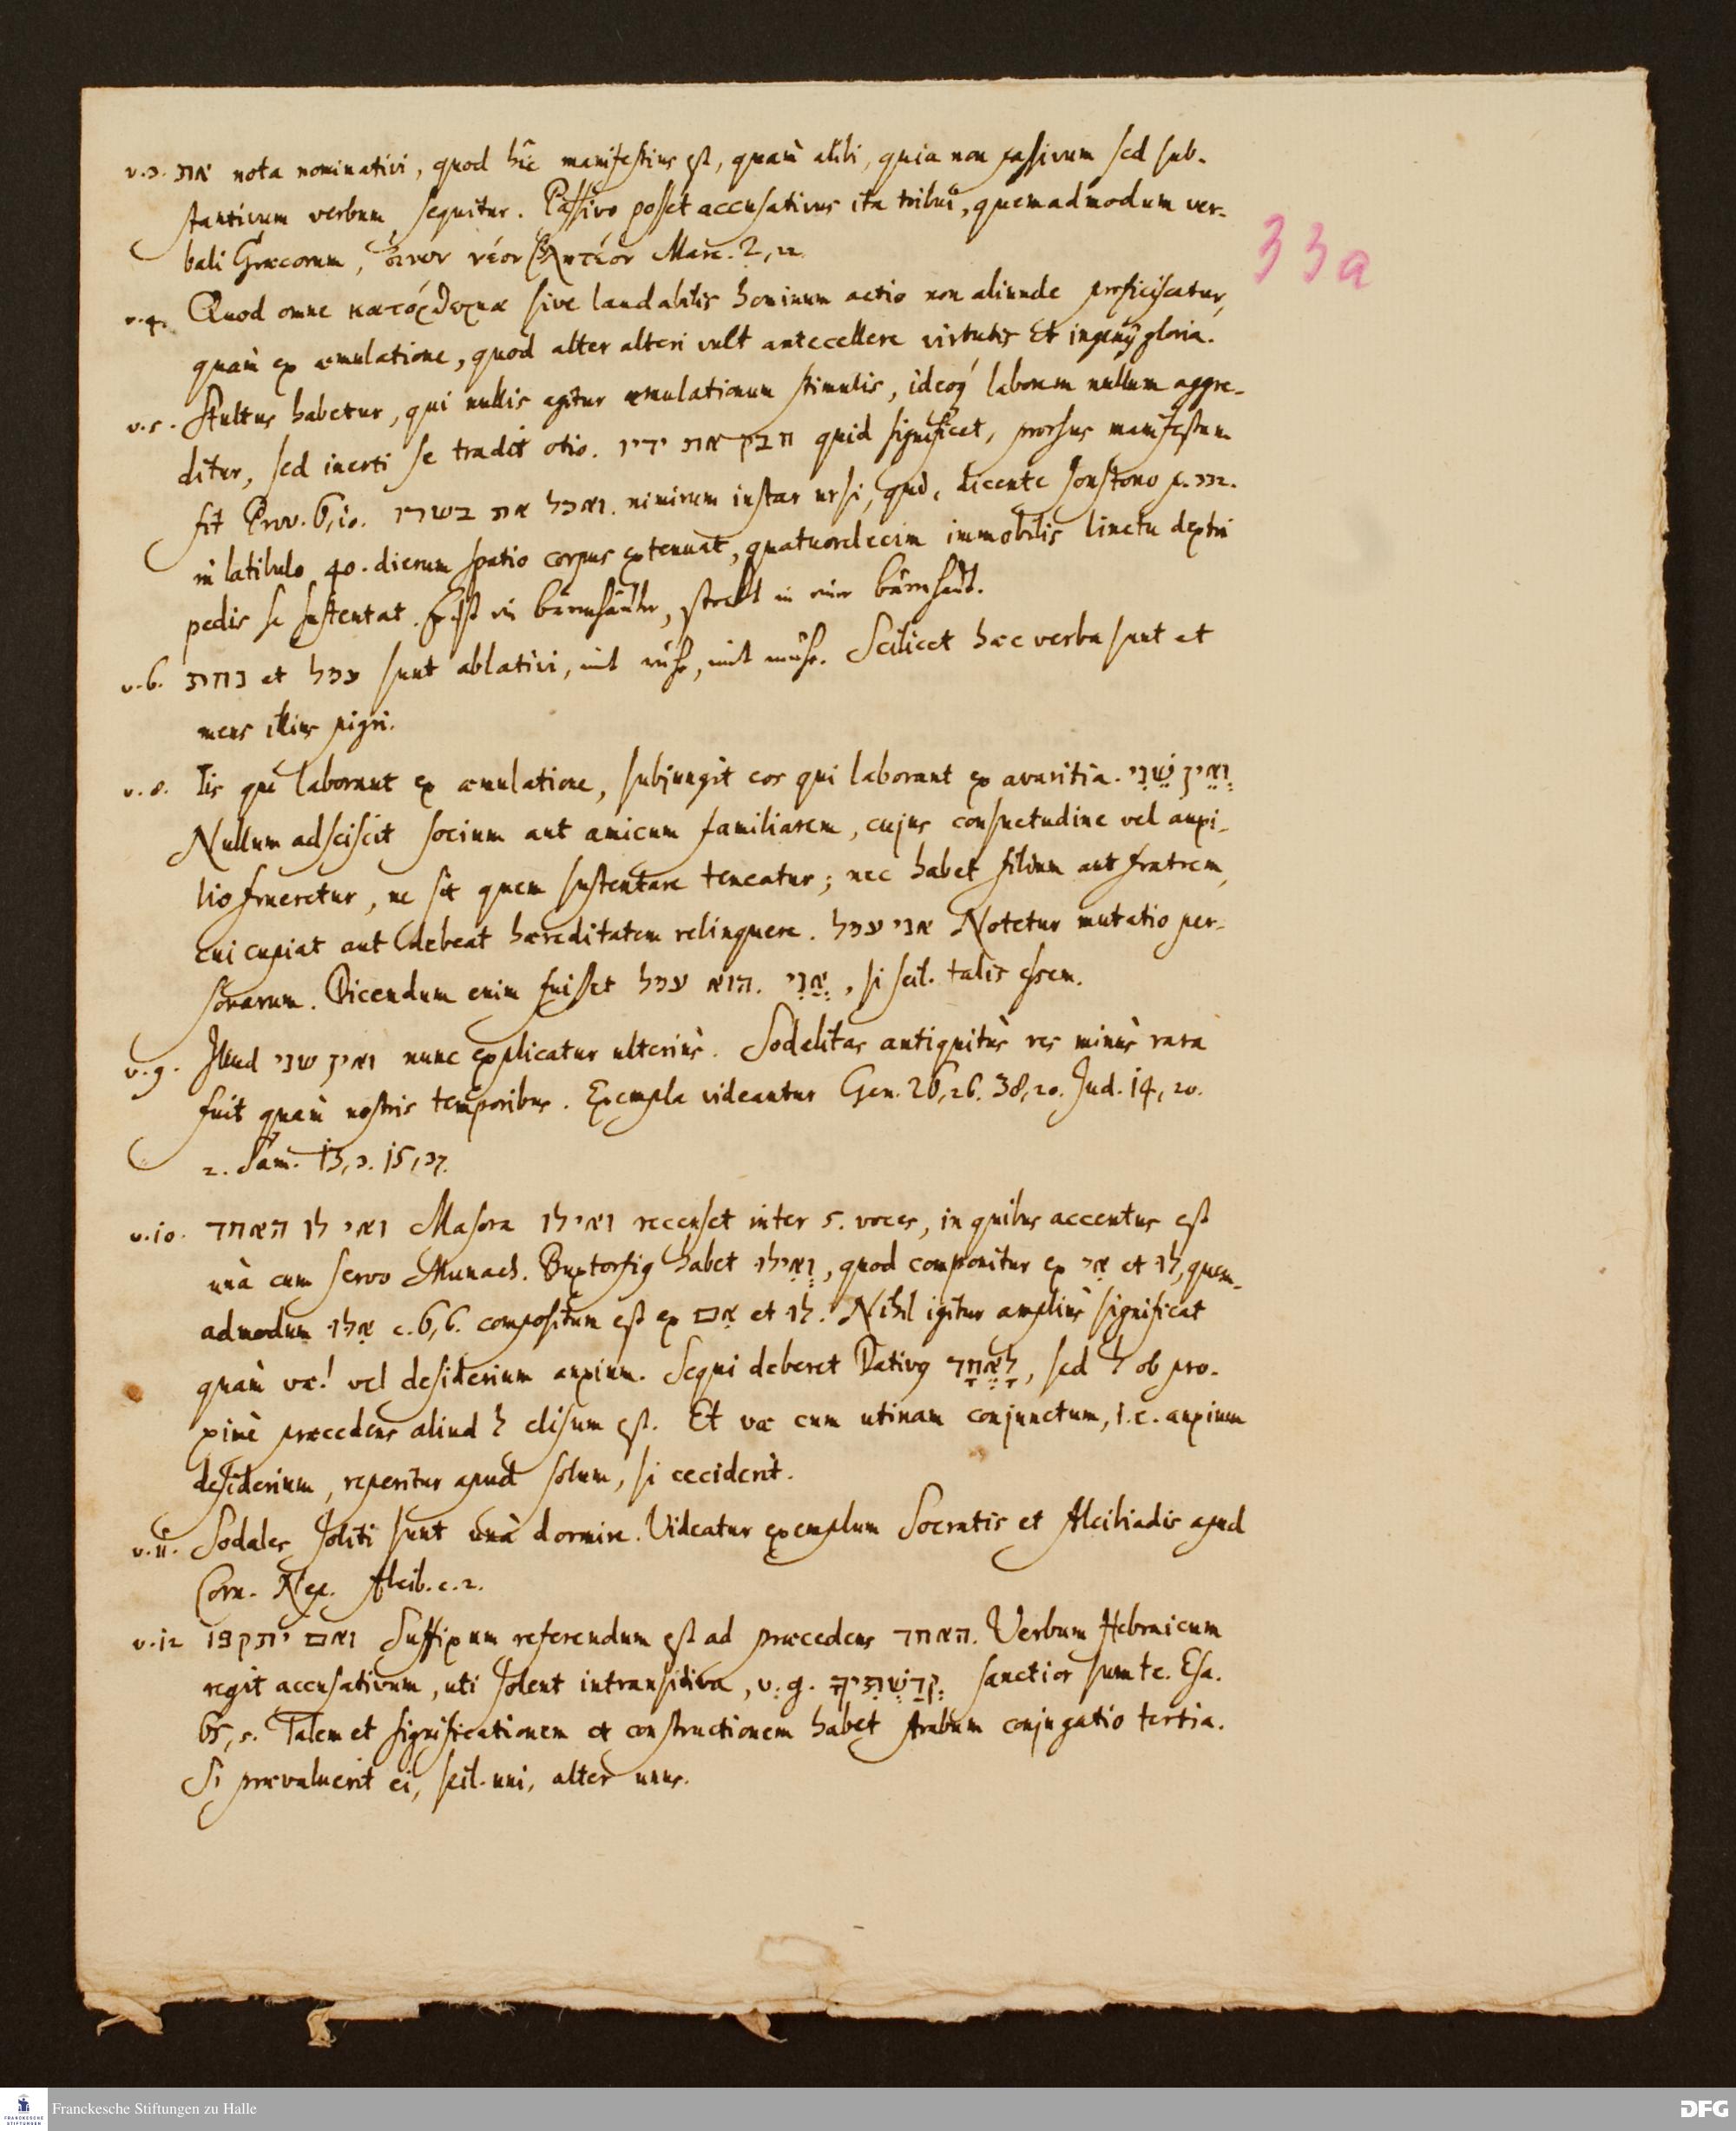 v.3. את nota nominativi, quod hîc manifestius est, quam alibi, quia non passivum sed sub-
stantivum verbum sequitur. Passivo posset accusativus ita tribui, quemadmodum ver-
bali Græcorum, οἶνον νέον βλητέον Marc. 2, 22.
33a
v.4. Quod omne κατόρθωμα sive laudabilis hominum actio non aliunde proficiscatur,
quàm ex æmulatione, quod alter alteri vult antecellere virtutis et ingenij gloria.
v.5. Stultus habetur, qui nullis agitur æmulationum stimulis, ideoq́ laborem nullum aggre-
ditur, sed inerti se tradit otio. חבק את ידיו quid significet, prorsus manifestum
fit Prov. 6, 10. ואכל את בשרו. nimirum instar ursi, qui, dicente Jonstono p. 332.
in latibulo 40. dierum spatio corpus extenuat, quatuordecim immobilis linctu dextri
pedis se sustentat. Er ist ein bärnhäuter, steckt in einer bärnhaut.
v.6. נחת et עמל sunt ablativi, mit ruhe, mit mühe. Scilicet hæc verba sunt et
mens illius pigri.
v.8. Iis qui laborant ex æmulatione, subjungit eos qui laborant ex avaritia. וְאֵין שֵׁנִי
Nullum adsciscit socium aut amicum familiarem, cujus consuetudine vel auxi-
lio frueretur, ne sit quem sustentare teneatur; nec habet filium aut fratrem,
cui cupiat aut debeat hæreditatem relinquere. אני עמל Notetur mutatio per-
sonarum. Dicendum enim fuisset הוא עמל. אֲנִי, si scil. talis essem.
v.9. Illud ואין שני nunc explicatur ulteriùs. Sodalitas antiquitùs res minùs rara
fuit quàm nostris temporibus. Exempla videantur Gen. 26, 26. 38, 20. Jud. 14, 20.
2. Sam. 13, 3. 15, 37.
v.10. ואי לו האחד Masora ואילו recenset inter 5. voces, in quibus accentus est
unà cum servo Munach. Buxtorfig habet וְאִילוֹ, quod componitur ex אִי et לו, quem-
admodum אִלּוּ c. 6, 6. compositum est ex אִם et לוּ. Nihil igitur ampliùs significat
quàm væ! vel desiderium anxium. Sequi deberet Dativg לָאֶחָד, sed ל ob pro-
ximè præcedens aliud ל elisum est. Et væ cum utinam conjunctum, i.e. anxium
desiderium, reperitur apud solum, si ceciderit.
v.11. Sodales soliti sunt unà dormire. Videatur exemplum Socratis et Alcibiadis apud
Corn. Nep. Alcib. c. 2.
v.12 ואם יתקפו Suffixum referendum est ad præcedens האחד. Verbum Hebraicum
regit accusativum, uti solent intransitiva, v.g. קְדַשְׁתִּיךָ sanctior sum te. Esa.
65, 5. Talem et significationem et constructionem habet Arabum conjugatio tertia.
Si prævaluerit ei, scil. uni, alter unus.
Franckesche Stiftungen zu Halle
DFG